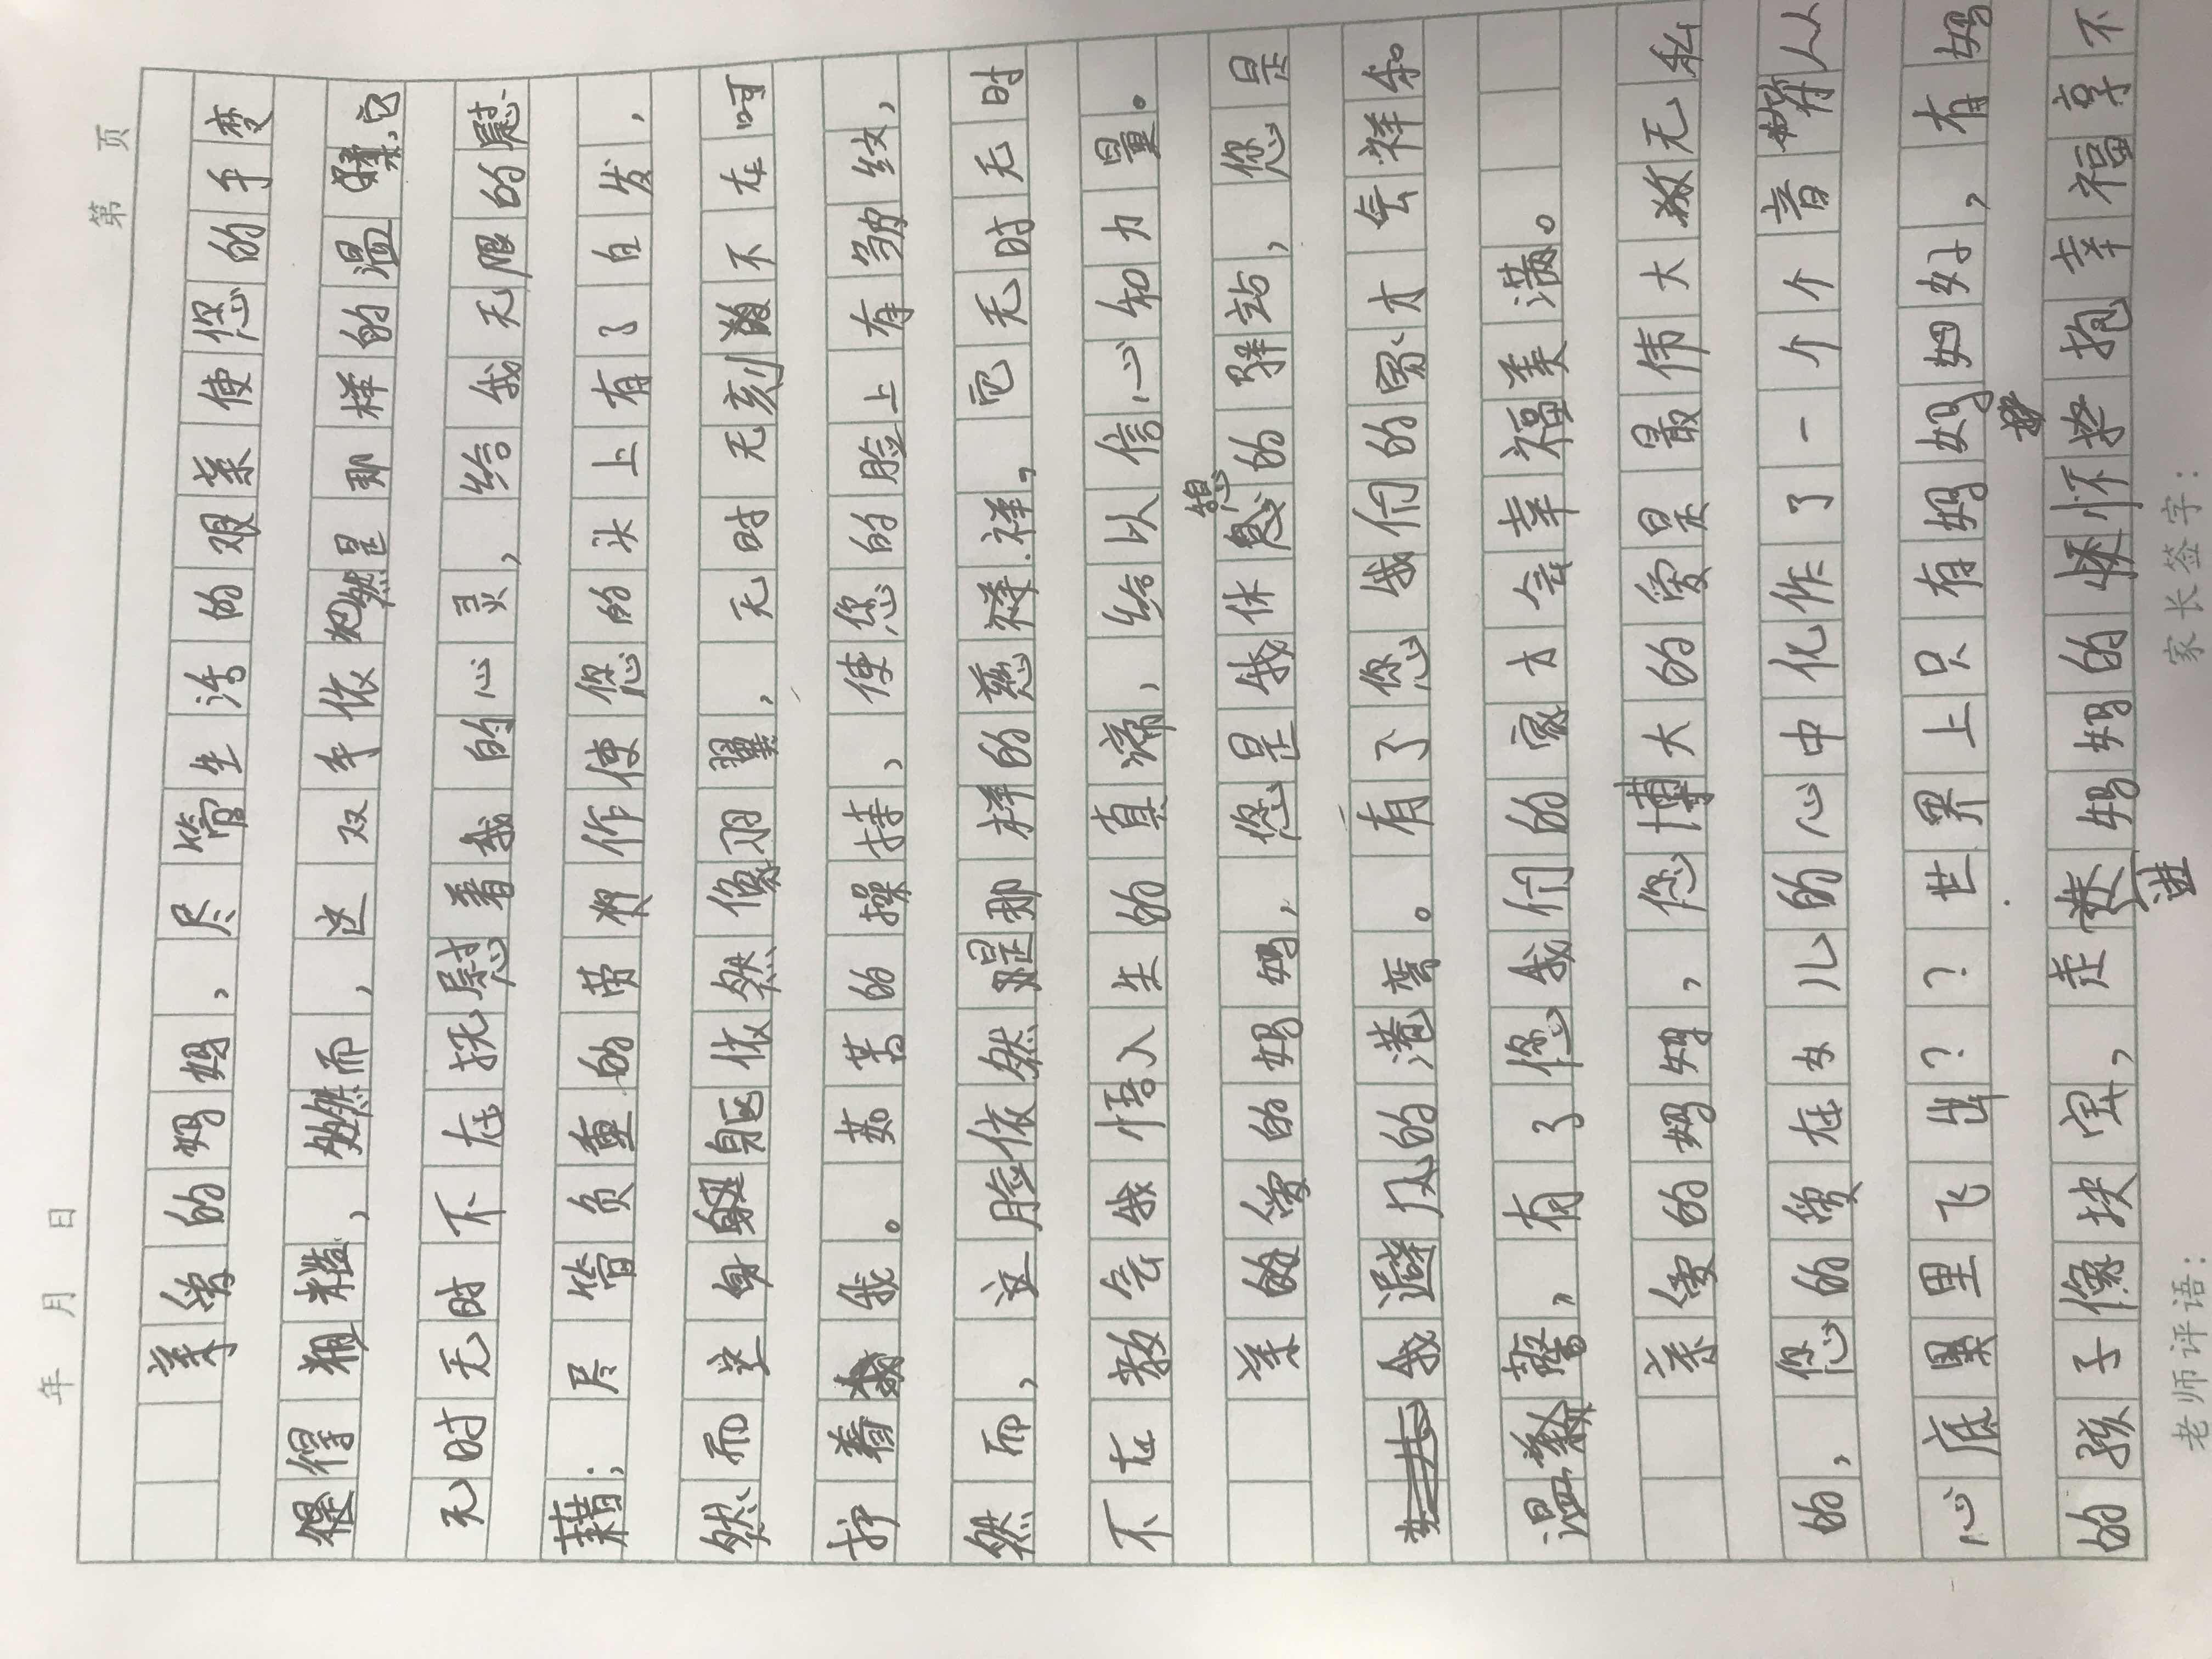 年 月 日 第 页
亲爱的妈妈，尽管生活的艰亲使您的手变
得粗糙，然而，这双手依然是那样的温柔，它
无时无时不在抚慰着我的心灵，给我无限的慰
藉；尽管负重的劳作使您的头上有了白发，
然而这身躯依然像羽翼，无时无刻不在呵
护着我。茹苦的操持，使您的脸上有皱纹，
然而，这脸依然是那样的慈祥，它无时无时
不在教会我悟入生的真谛，给以信心和力量。
亲爱的妈妈，您是我休憩的驿站，您是
我避风的港弯。有了您我们的家才会祥和
温馨，有了您我们的家才会幸福美满。
亲爱的妈妈，您博大的爱是最伟大无私
的，您的爱在女儿的心中化作了一个个音符从
心底里飞出？？世界上只有妈妈好，有妈
的孩子像块宝，走进妈妈的怀抱幸福享不
老师评语： 家长签字：